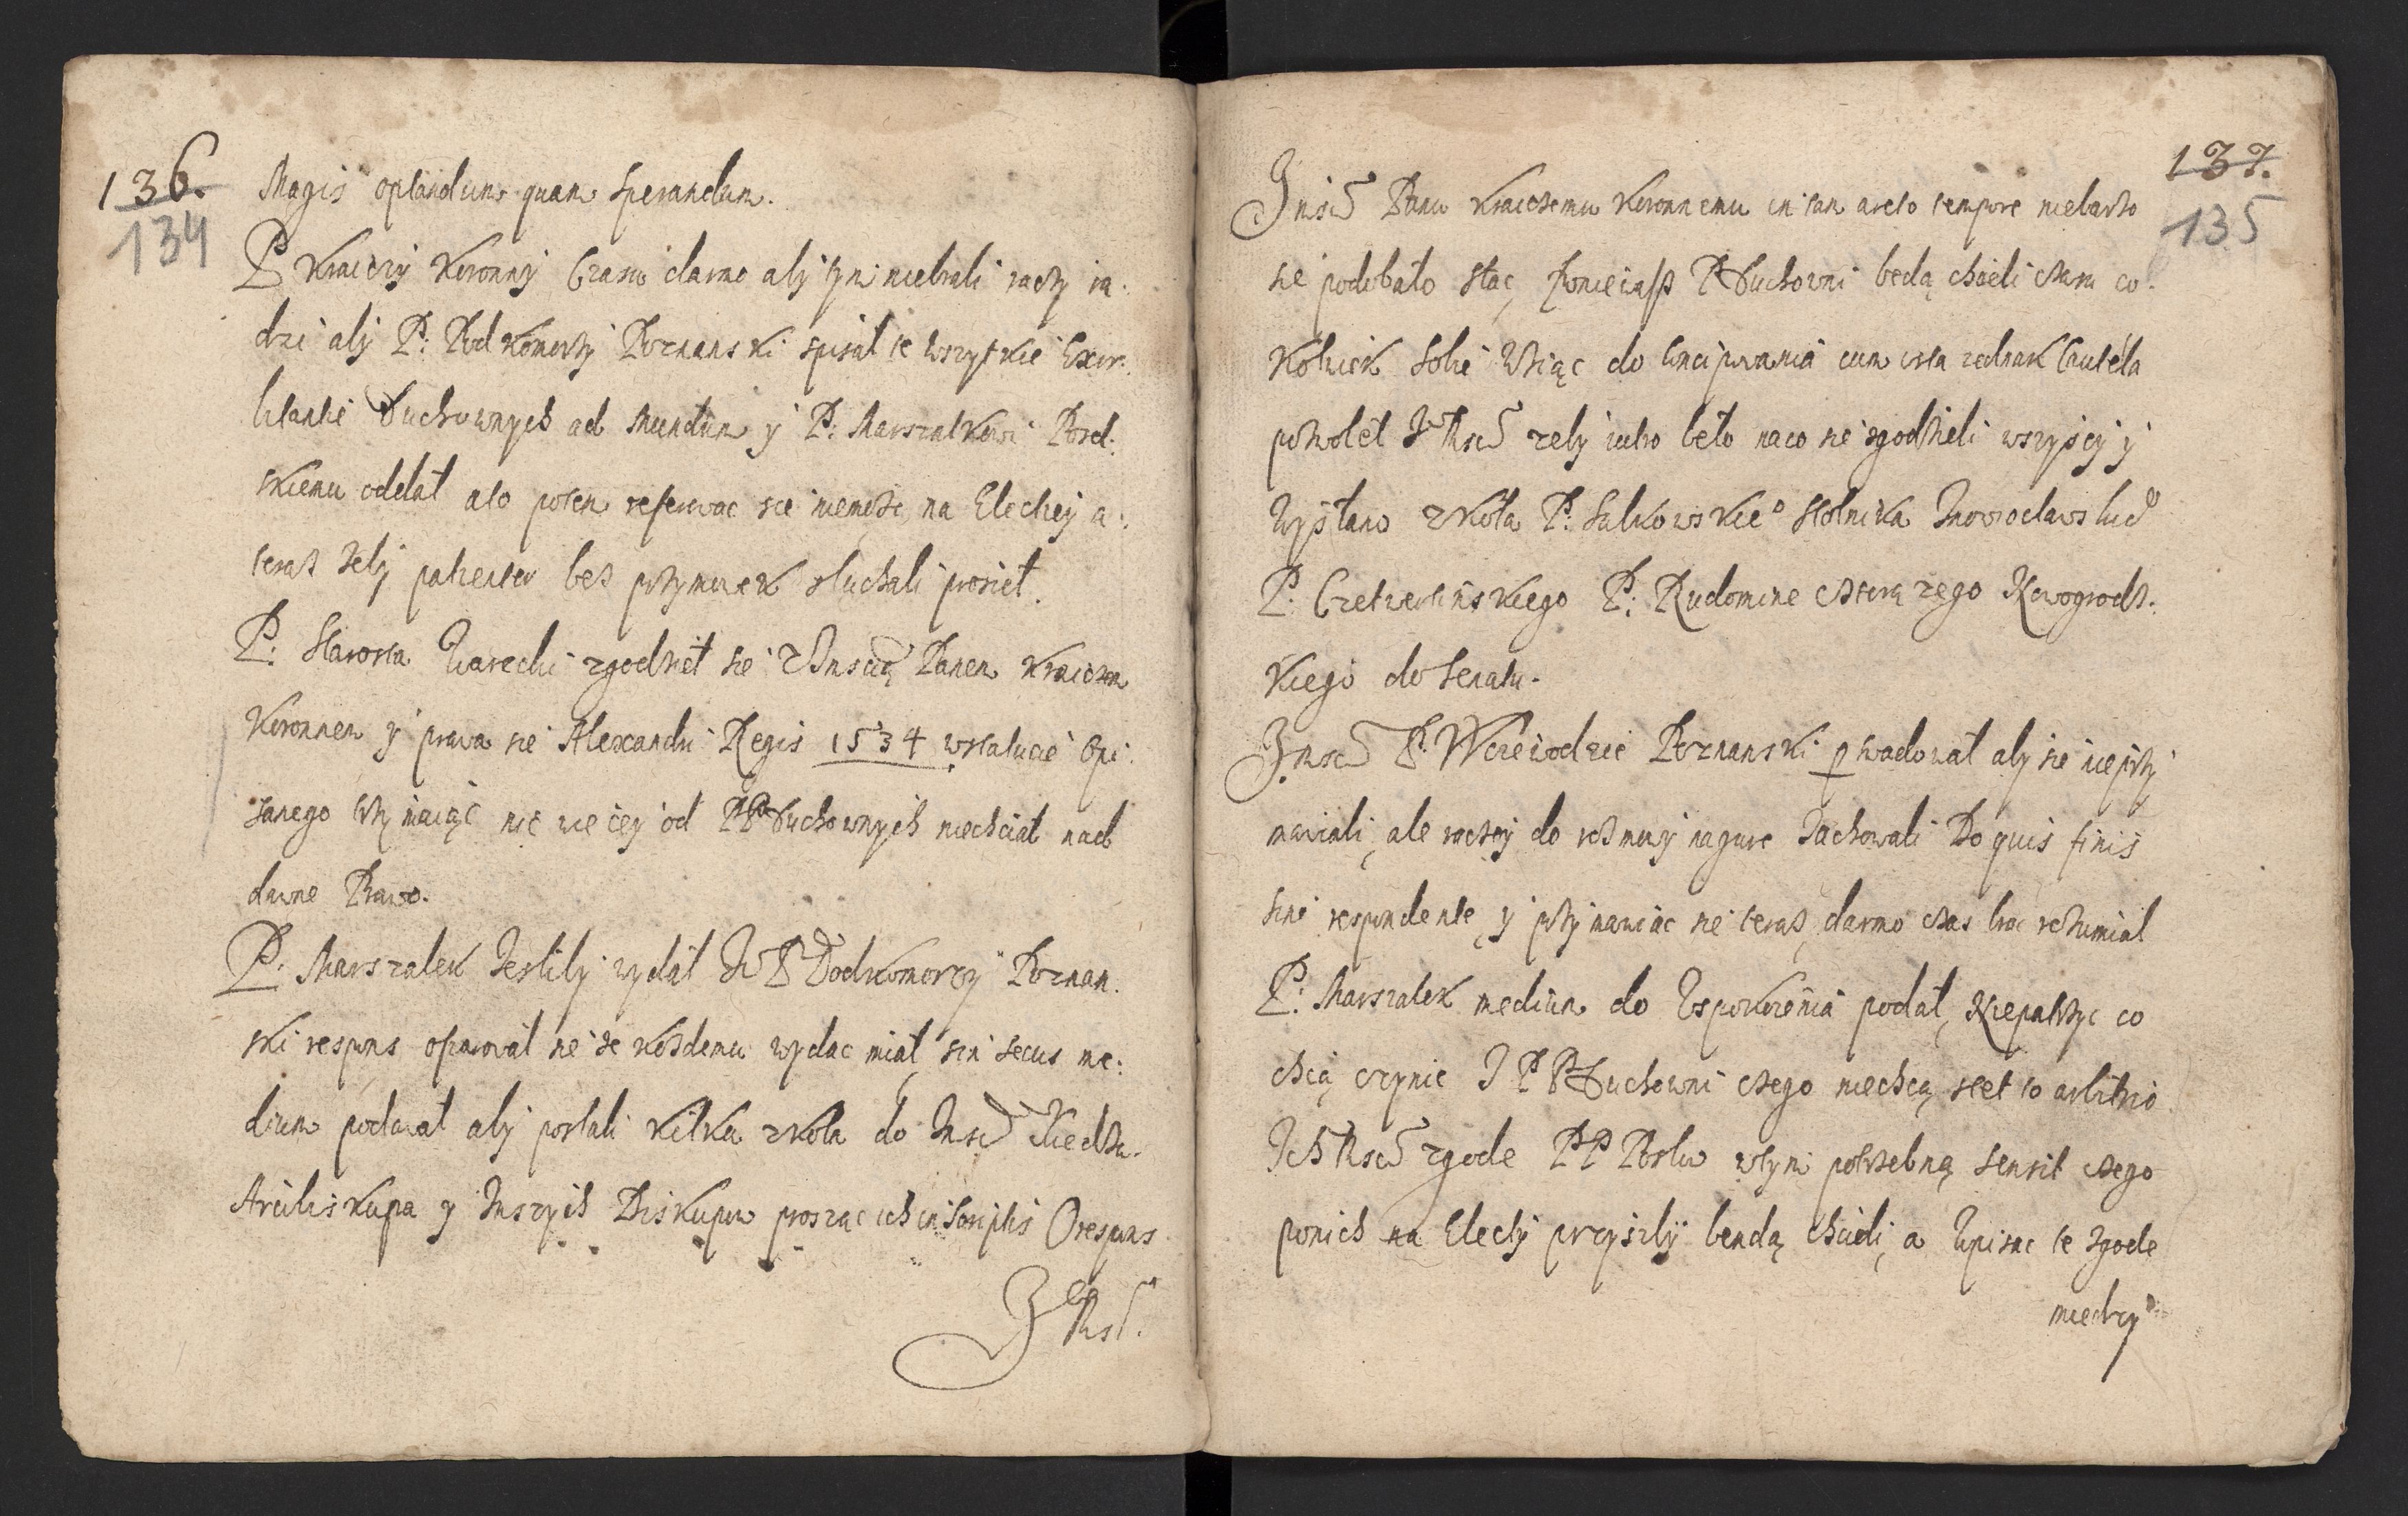 136.
134
Magis optandum quam sperandum.
P Kraiczy Koronny Czasu darmo aby tym niebrali raczy ra:
dzi aby P: Podkomorzy Poznanski spisał te wszytkie Exor:
bitantie Duchownych ad Mundum y P: Marszałkowi Posel:
skiemu oddał a to potem reserwac sie niemoże, na Elekciey a:
teraz żeby patienter bez przymowek słuchali prosieł.
P: Starosta Warecki zgodzieł sie z Jmscią Panem Kraiczem
Koronnem y prawa sie Alexandri Regis 1534 w statucie Opi:
sanego trzymaiąc nic wie cey od PP Duchownych niechciał nad
dawne Prawo.
P. Marszałek Jestliby wydał JP Podkomorzy Poznan.
ski respons ofiarował sie że każdemu wydac miał, sin secus me:
dium podawał aby posłali kilku z koła do Jmsci Xiedza
Arcibiskupa y Inszych Biskupow prosząc ich in Scriptis O respons
JeMsc.
137.
135
Jmsci Panu Kraiczemu Koronnemu in tam arcto tempore niebarzo
sie podobało słac, Ponieważ PP Duchowni bedą chcieli czasu co:
kolwiek sobie Wziąc do Concipowania cum ista iednak Cautela
pozwoleł JeMsc zeby iutro beło na co sie zgodzieli wszyscy y
Wysłano z koła P: Sulkowskieo Stolnika Inowrocławskieo
P: Czetwertinskiego P: Rudomine Chorążego Nowogrodz:
kiego do Senatu.
Jmsc P. Woiewodzic Poznanski perswadował aby sie nieprzy
mawiali, ale raczey do rozmowy na gure Zachowali Bo quis finis
sine respondente, y przymawiac sie teraz, darmo czas trac rozumiał
P: Marszałek medium do Uspokoienia podał, Niepatrzyc co
chcą czynic J PP Duchowni czego niechcą, stet to arbitrio
Ich Msci zgode PP Posłow w tym potrzebną sensit czego
po nich na Elekcy przyszły bendą chcieli, a Wpisac te zgode
miedzy